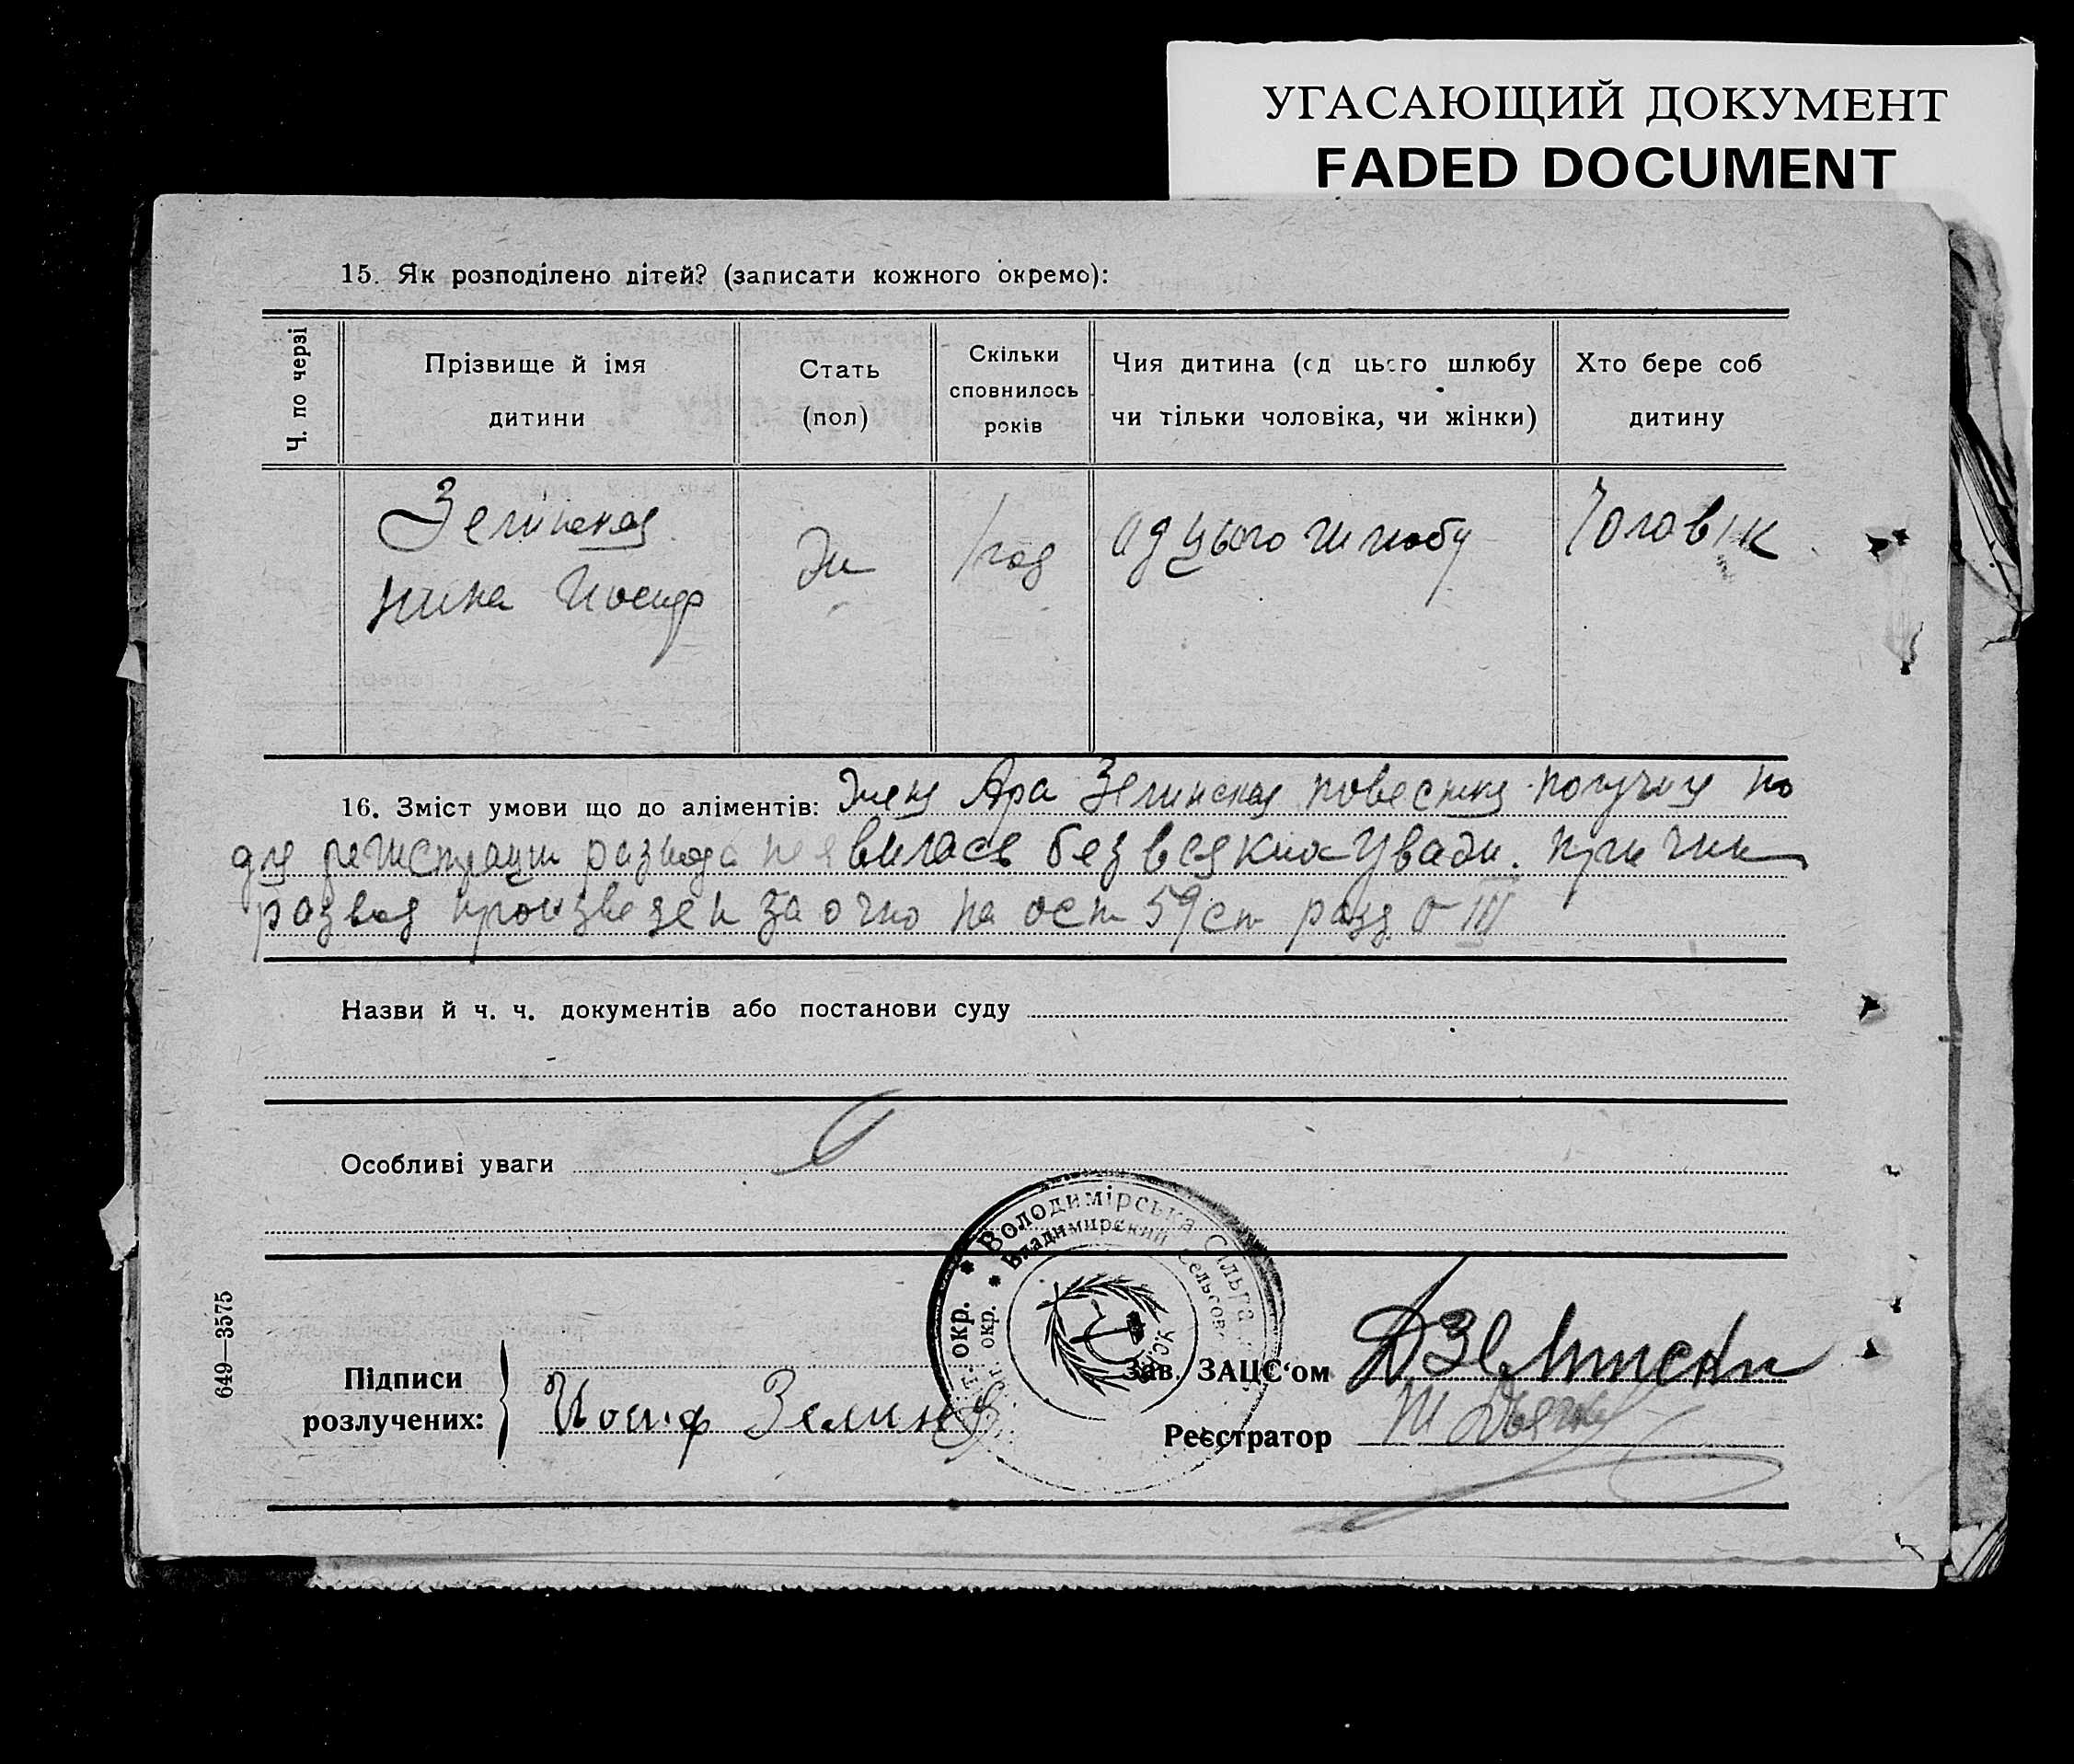 УГАСАЮЩИЙ ДОКУМЕНТ
FADED DOCUMENT
15. Як розподілено дітей? (записати кожного окремо):
Ч. по черзі
Прізвище й імя
дитини
Стать
(пол)
Скільки
сповнилось
років
Чия дитина (од цього шлюбу
чи тільки чоловіка, чи жінки)
Хто бере соб
дитину
Зелинская
Нина Иосиф
Жи
1 год
од цього шлюбу
Чоловік
16. Зміст умови що до аліментів: Жена Зелинская повестку получила но
для регистрации развода не явилась без всяких уваж. причин
развод произведен заочно на осн 59 ст разд III
Назви й ч. ч. документів або постанови суду
Особливі уваги
* Володимірська Сільрада
* Владимирский Сельсов
окр.
окр.
649—3575
Підписи
розлучених:
Иосиф Зелинс
Зав. ЗАЦС‘ом
Д Зелински
Реєстратор